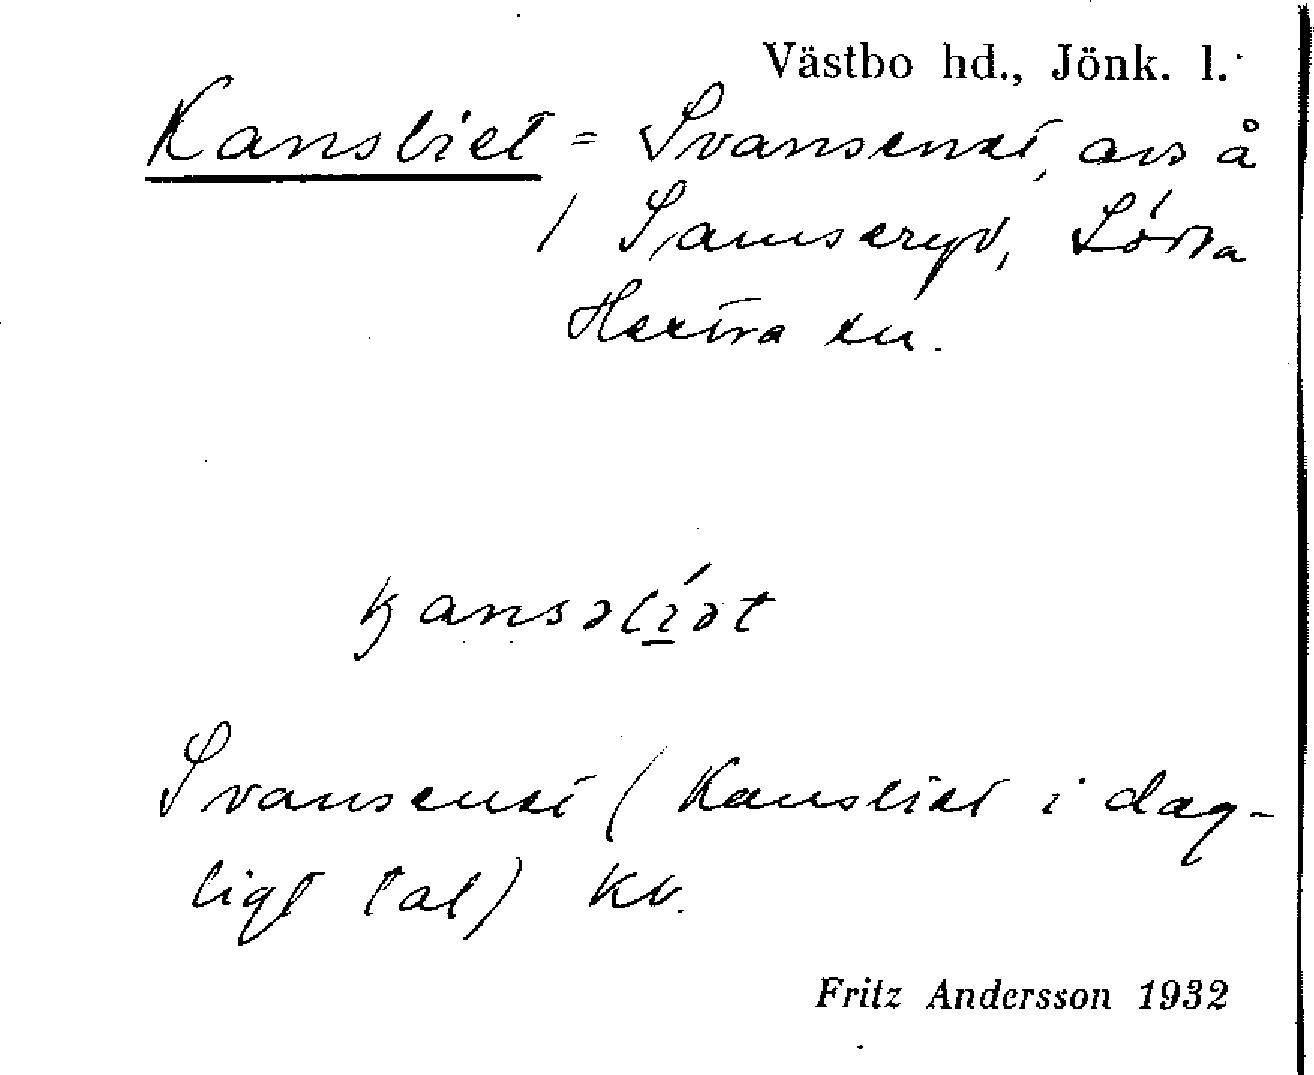 Västbo hd., Jönk. l.
Kansliet = Svansenet, avs å
/ Samseryd, Södra
Hestra sn.
kansəlíət
Svansenet (Kansliet i dag-
ligt tal) Kb.
Fritz Andersson 1932